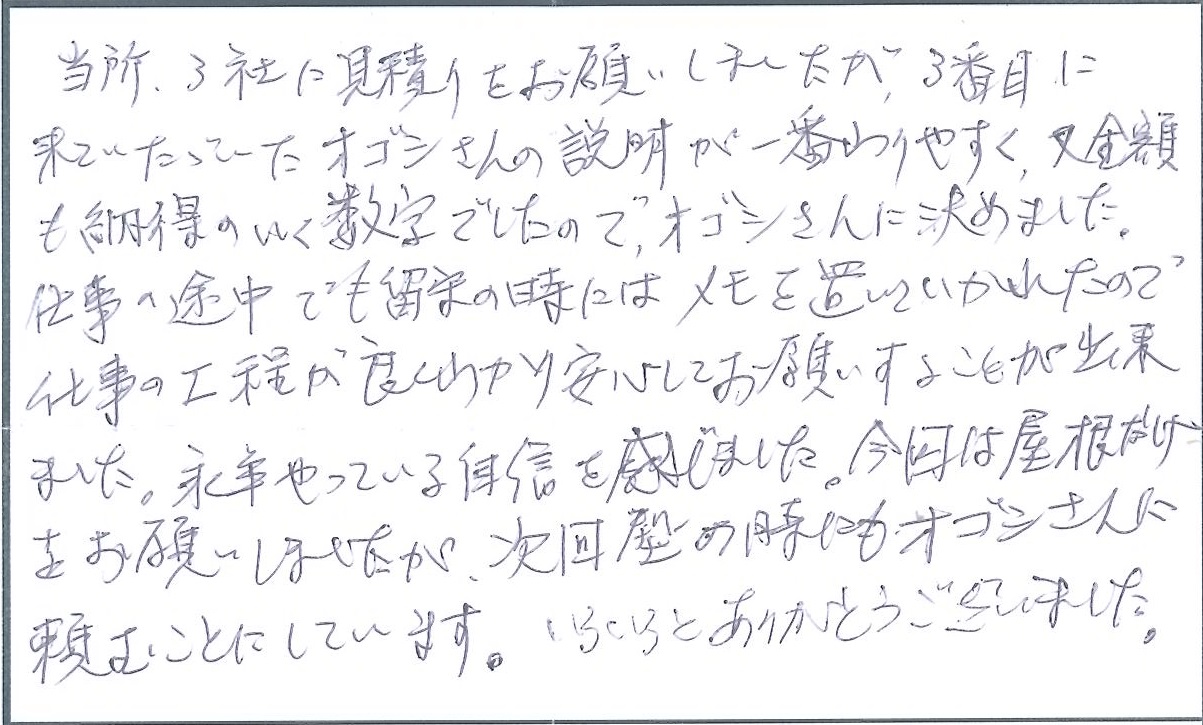 当所、3社に見積りをお願いしましたが、3番目に
来ていただいたオゴシさんの説明が一番わりやすく、又金額
も納得のいく数字でしたので、オゴシさんに決めました。
仕事の途中でも留守の時にはメモを置いていかれたので
仕事の工程が良くわかり安心してお願いすることが出来
ました。永年やっている自信を感じました。今回は屋根だけ
をお願いしましたが、次回壁の時にもオゴシさんに
頼むことにしています。いろいろとありがとうございました。